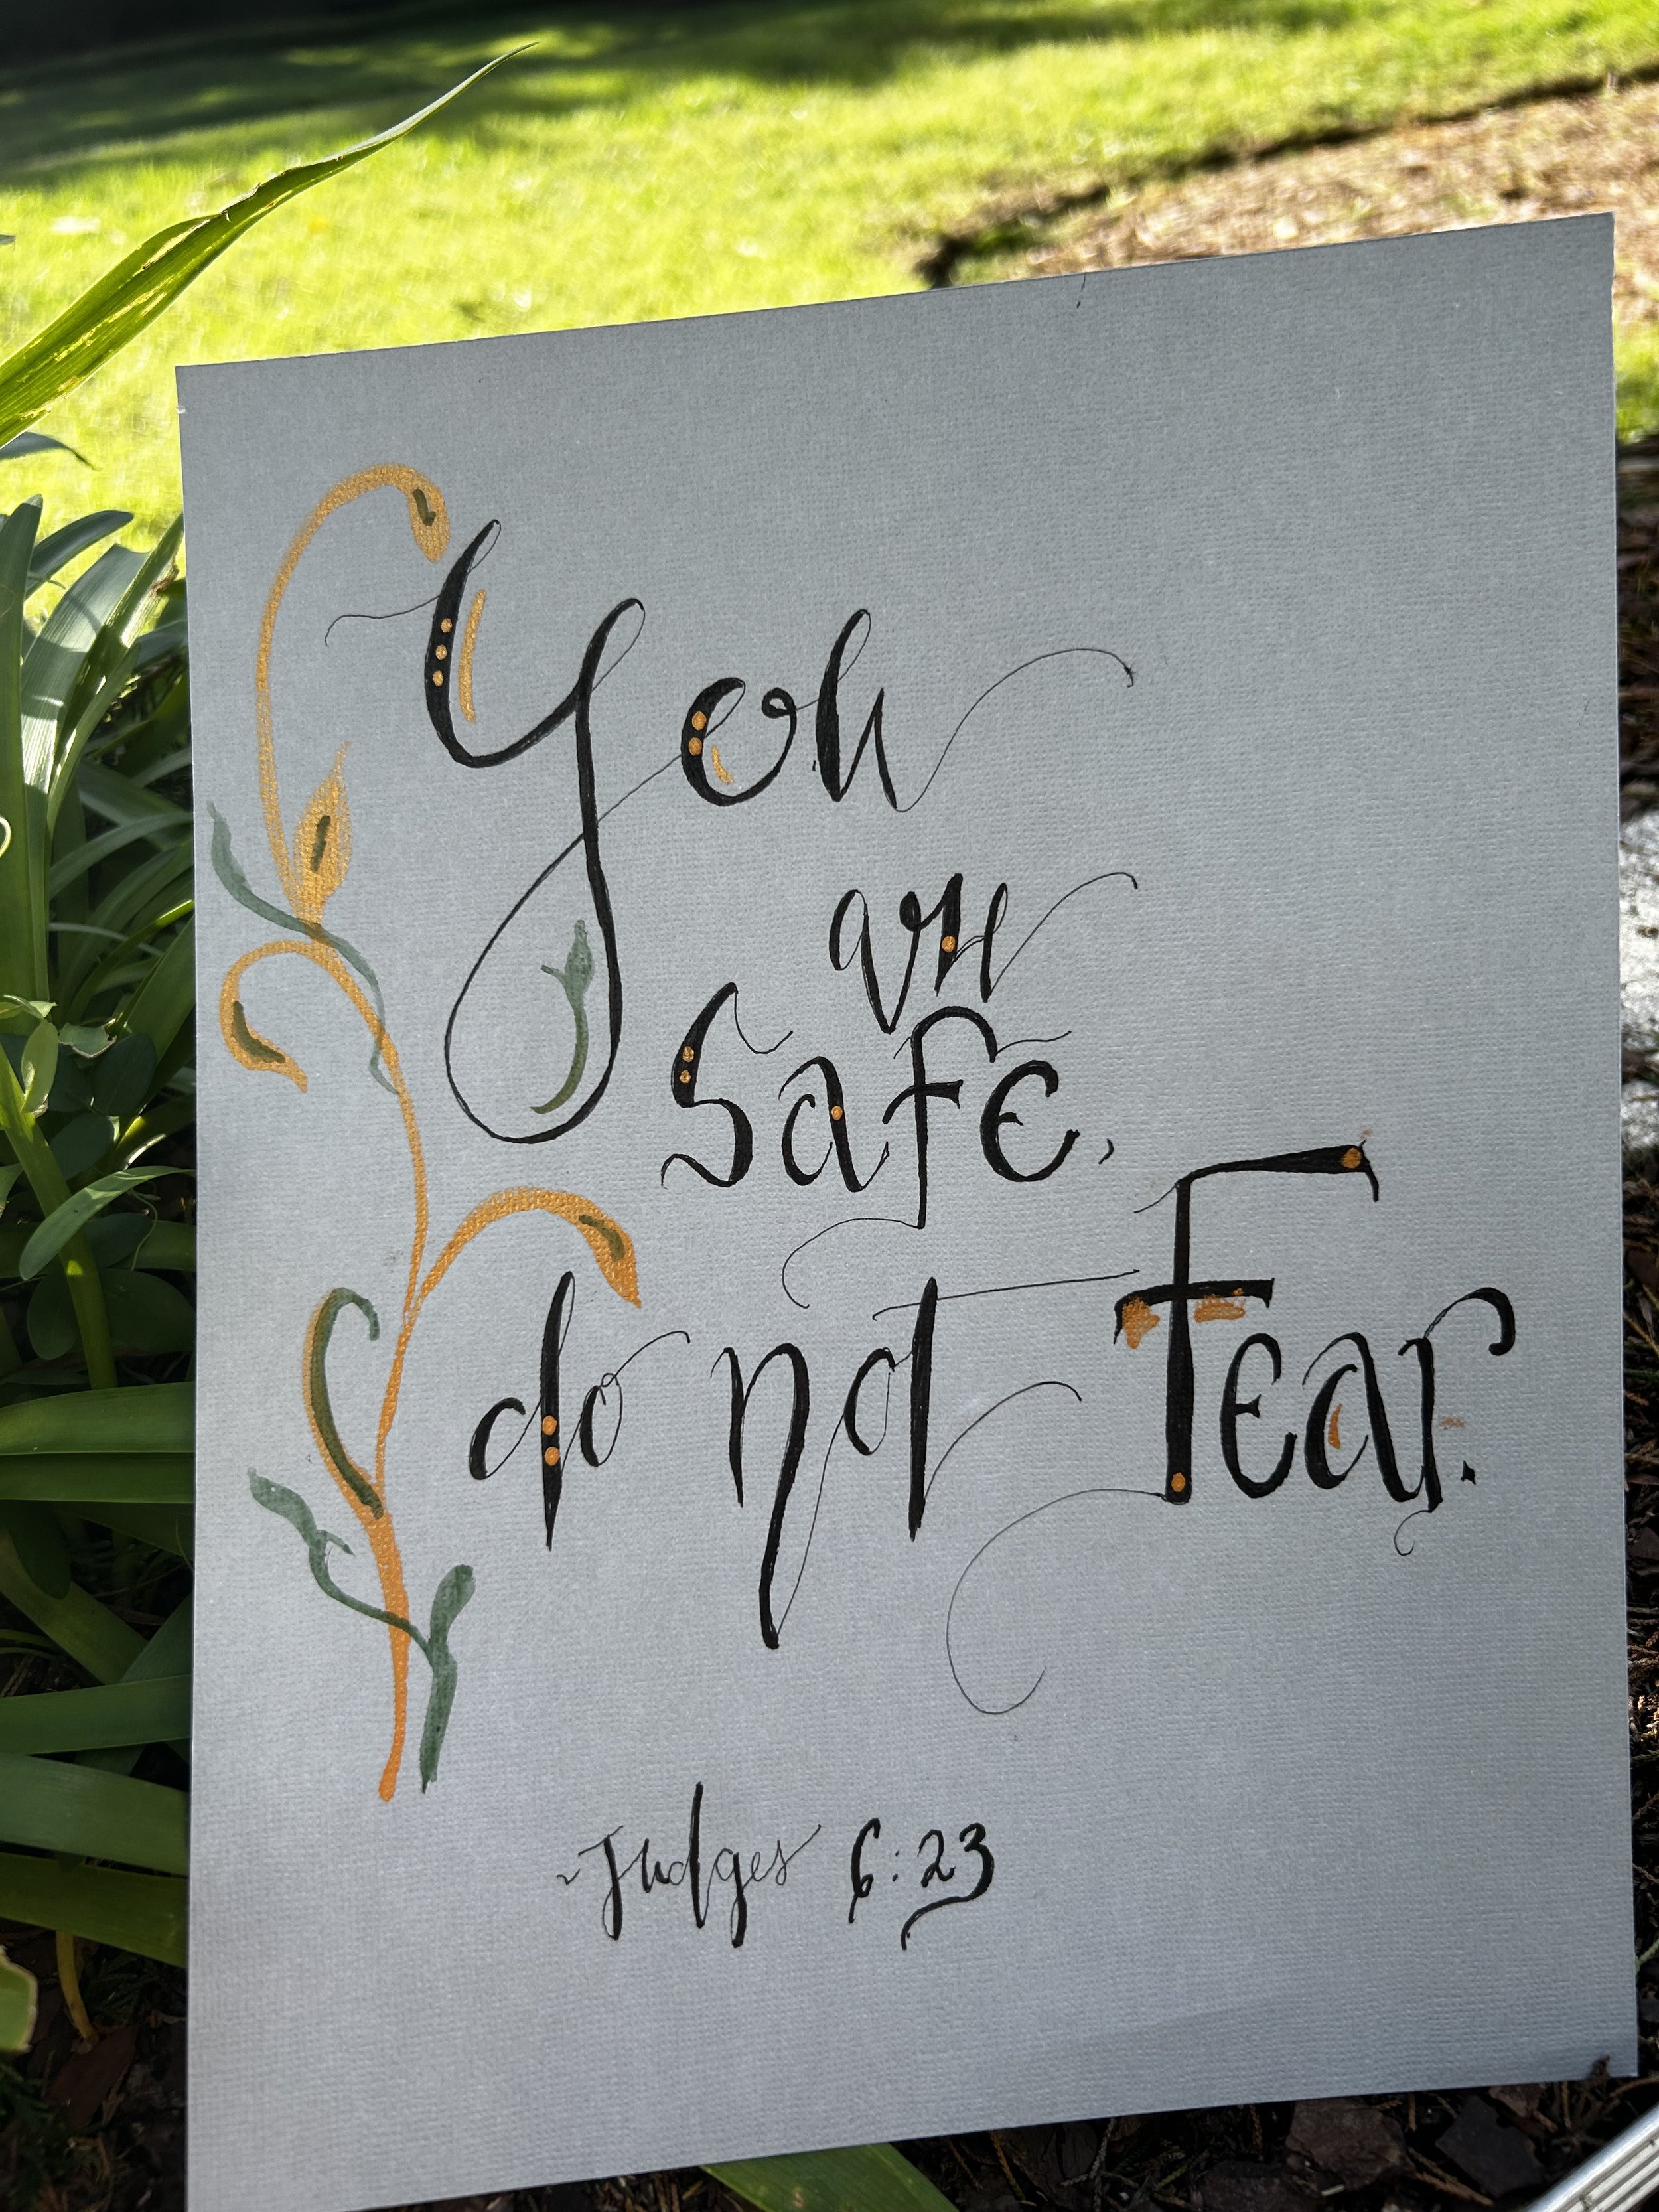 You
are
safe,
do not Fear.
~Judges 6:23